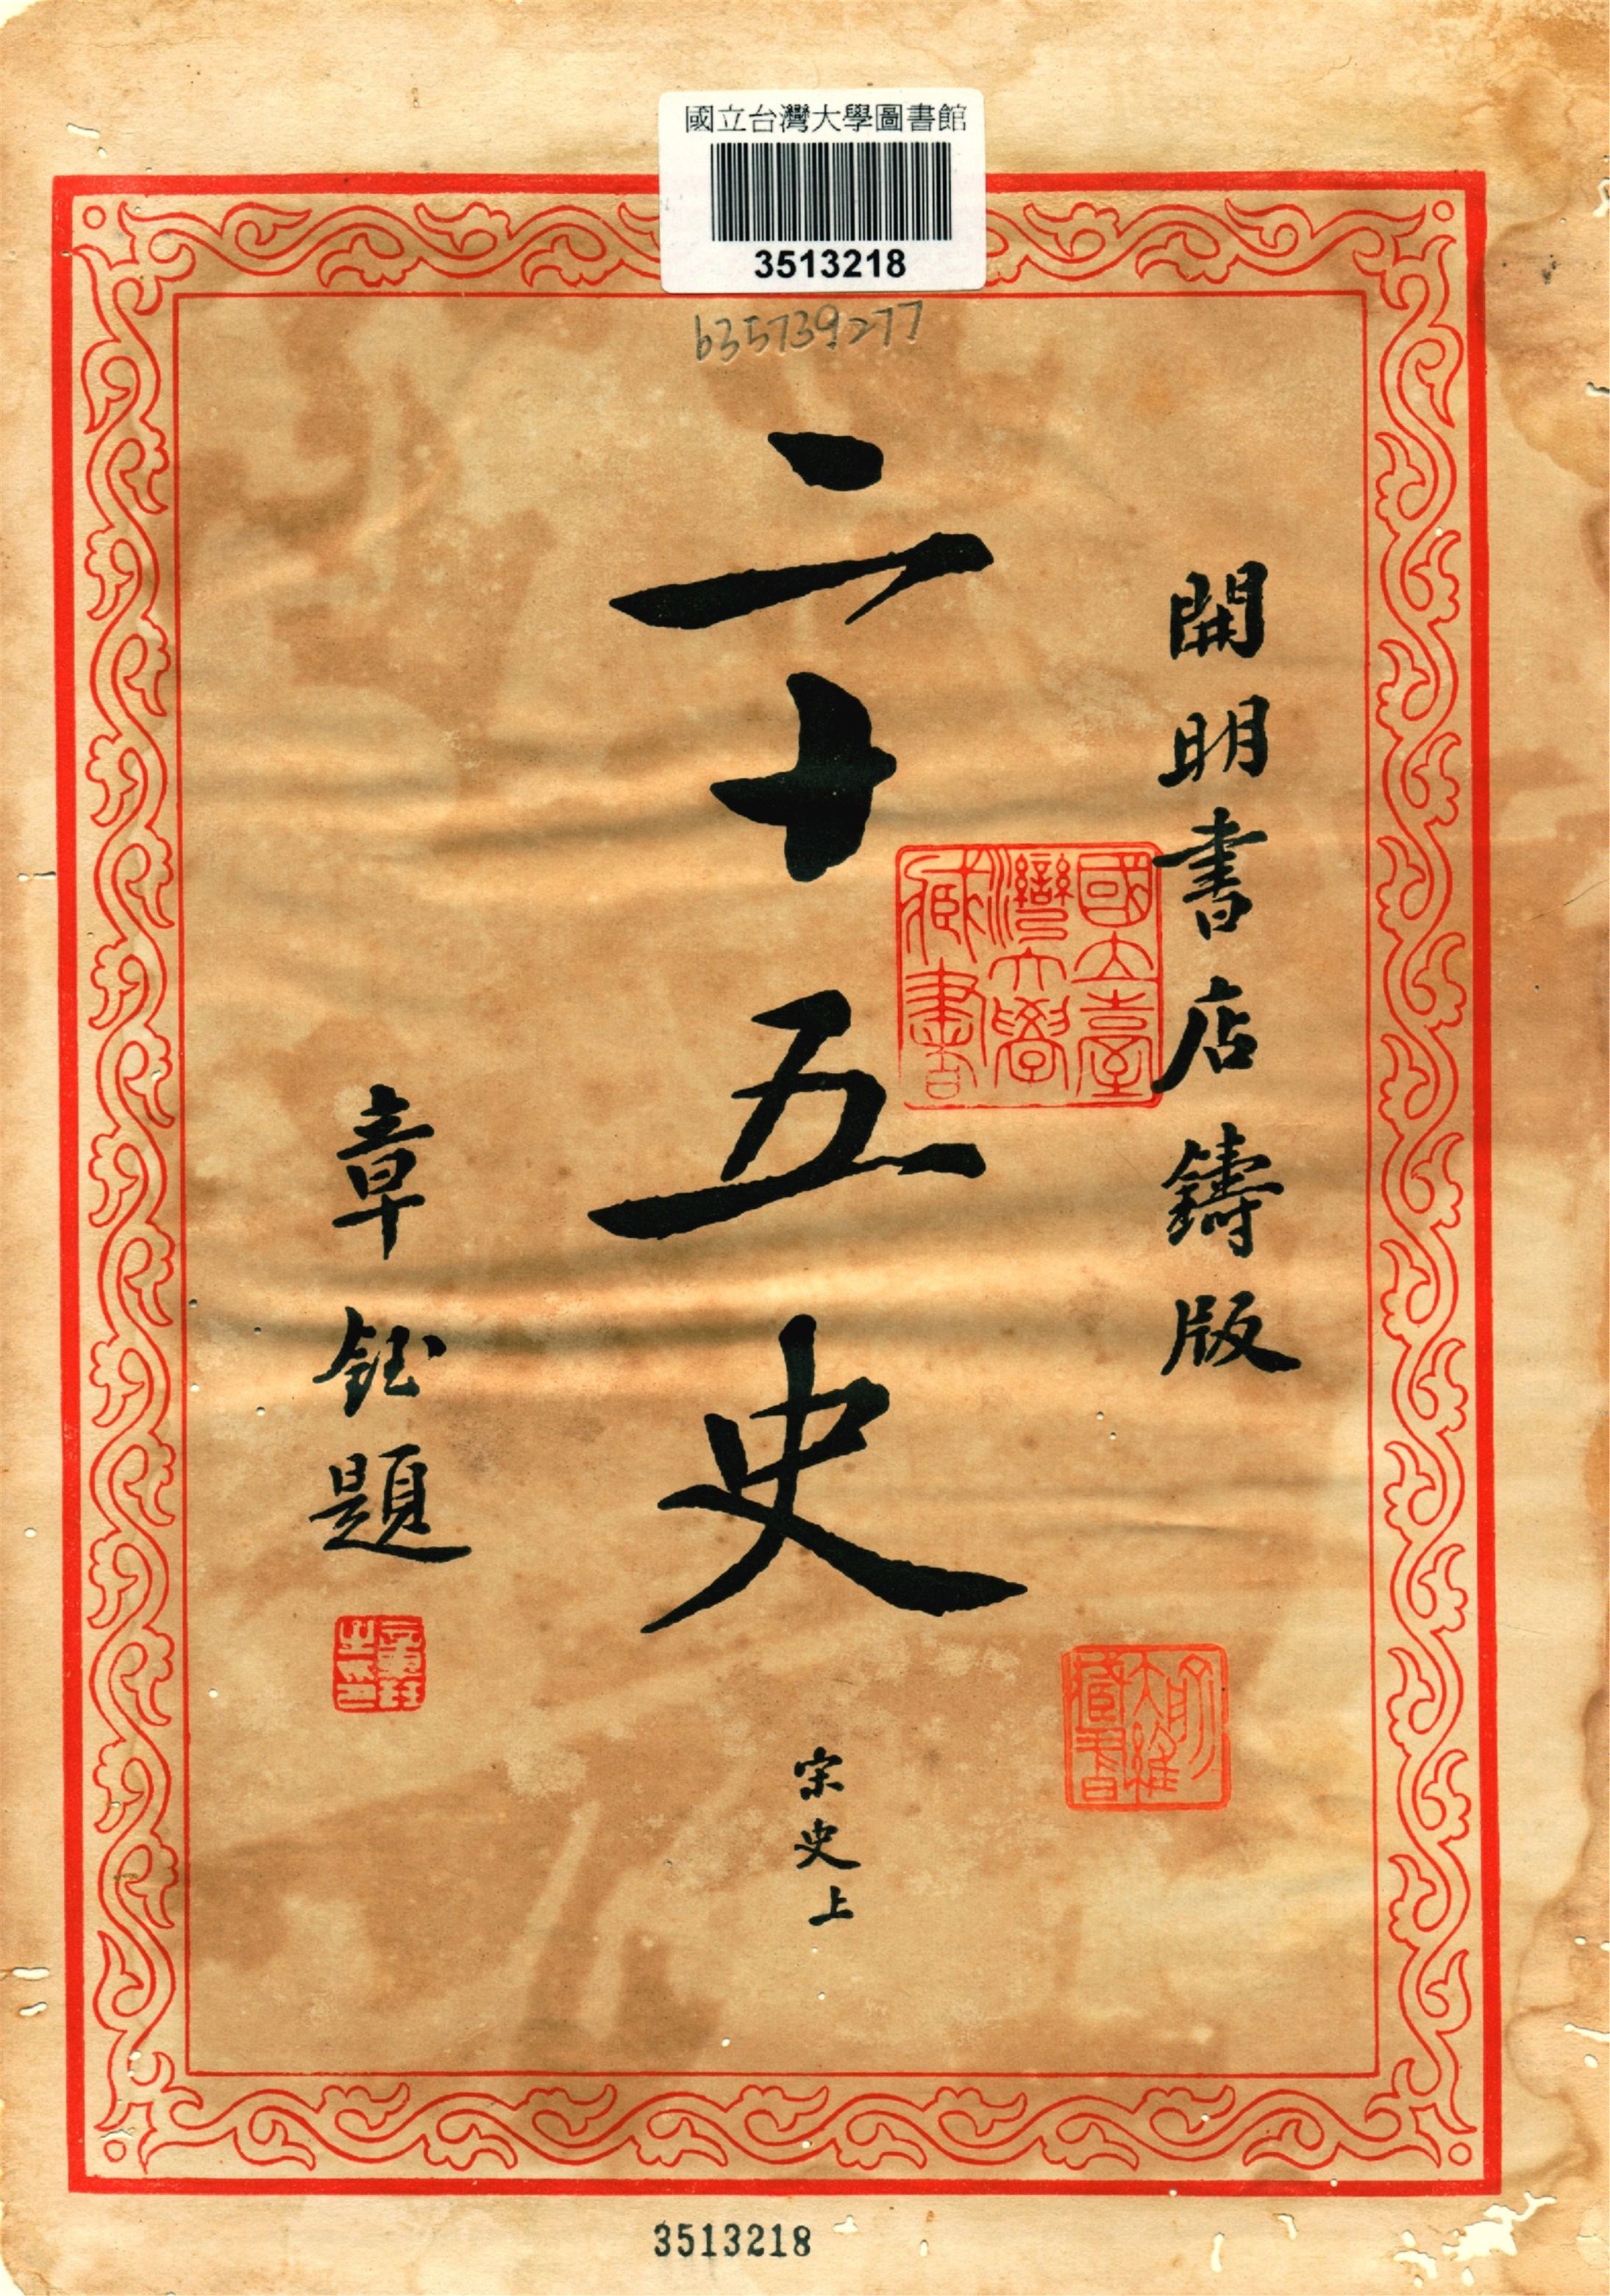 國立台灣大學圖書館
3513218
635739277
開明書店鑄版
二十五史
宋史上
章鈺題
國立臺
灣大學
藏書
3513218